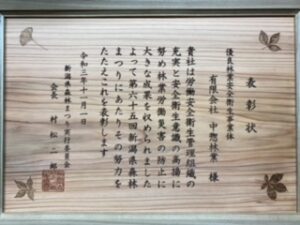 表彰状
優良林業安全衛生事業体
有限会社 中郷林業 様
貴社は労働安全衛生管理組織の
充実と安全衛生意識の高揚に
努め林業労働災害の防止に
大きな成果を収められました
よって第六十五回新潟県森林
まつりにあたりその努力を
たたえこれを表彰します
令和三年十一月一日
新潟県森林まつり実行委員会
会長 村松二郎